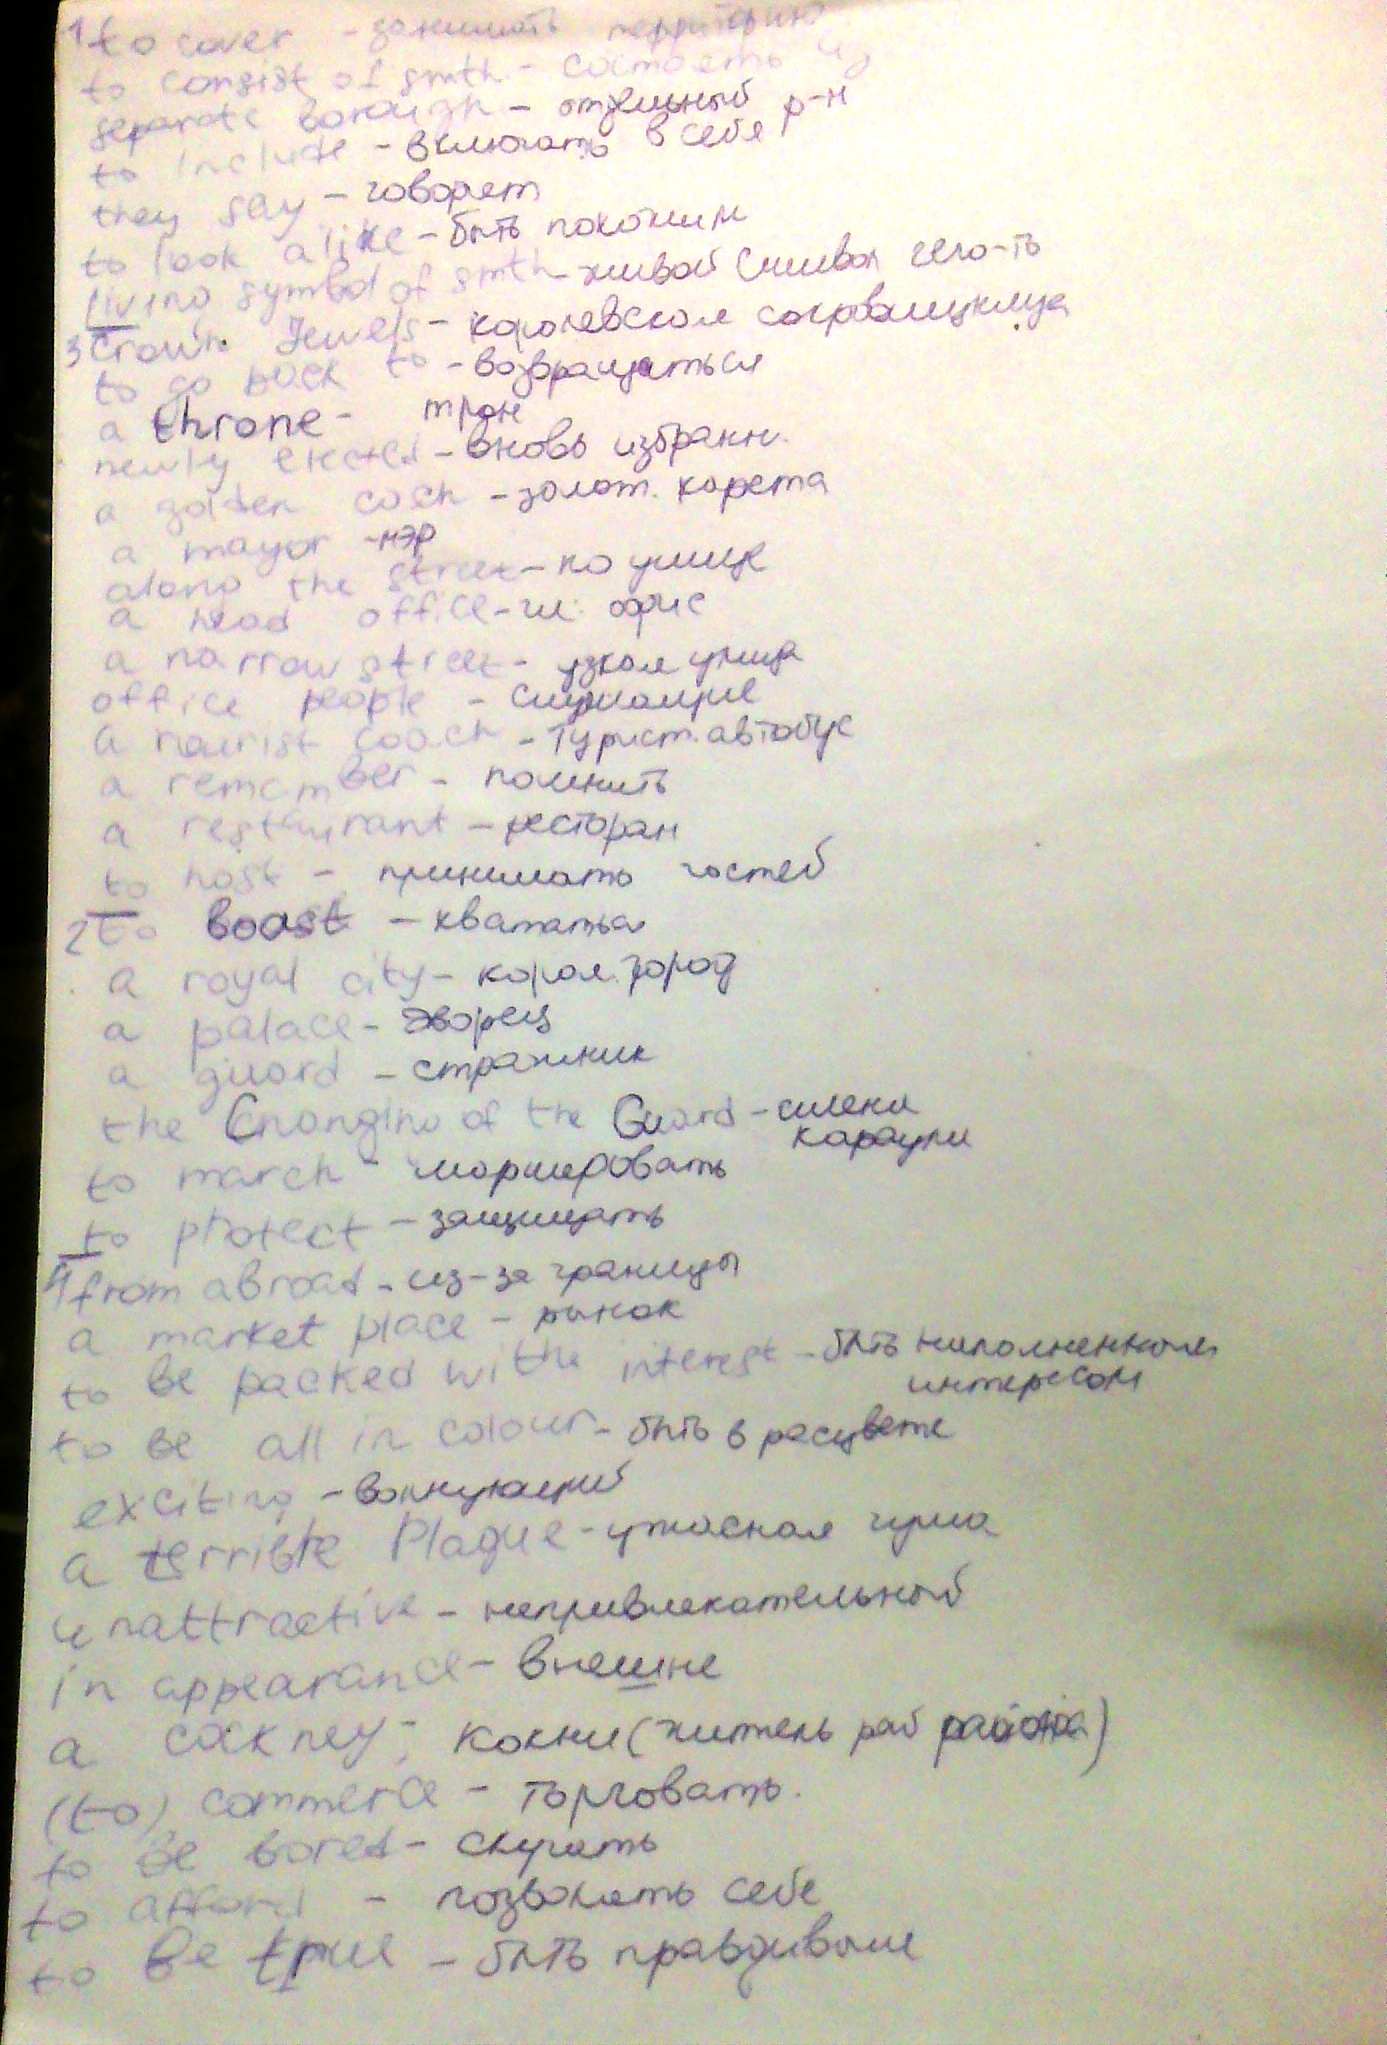 1 to cover - занимать территорию
to consist of smth - состоять из
separate borough - отдельный р-н
to include - включать в себя
they say - говорят
to look alike - быть похожим
living symbol of smth - живой символ чего-то
3 Crown Jewels - королевская сокровищница
to go back to - возвращаться
a throne - трон
newly elected - вновь избранн.
a golden coch - золот. карета
a mayor - мэр
along the street - по улице
a head office - гл. офис
a narrow street - узкая улица
office people - служащие
a tourist coach - турист. автобус
a remember - помнить
a restaurant - ресторан
to host - принимать гостей
2 to boast - хвататься
a royal city - корол. город
a palace - дворец
a guard - стражник
the Changing of the Guard - смена
караула
to march - маршировать
to protect - защищать
4 from abroad - из-за границы
a market place - рынок
to be packed with the interest - быть наполненным
интересом
to be all in colour - быть в расцвете
exciting - волнующий
a terrible Plague - ужасная чума
unattractive - непривлекательный
in appearance - внешне
a cockney - кокни (житель раб района)
(to) commerce - торговать.
to be bored - скучать
to afford - позволять себе
to be true - быть правдивым